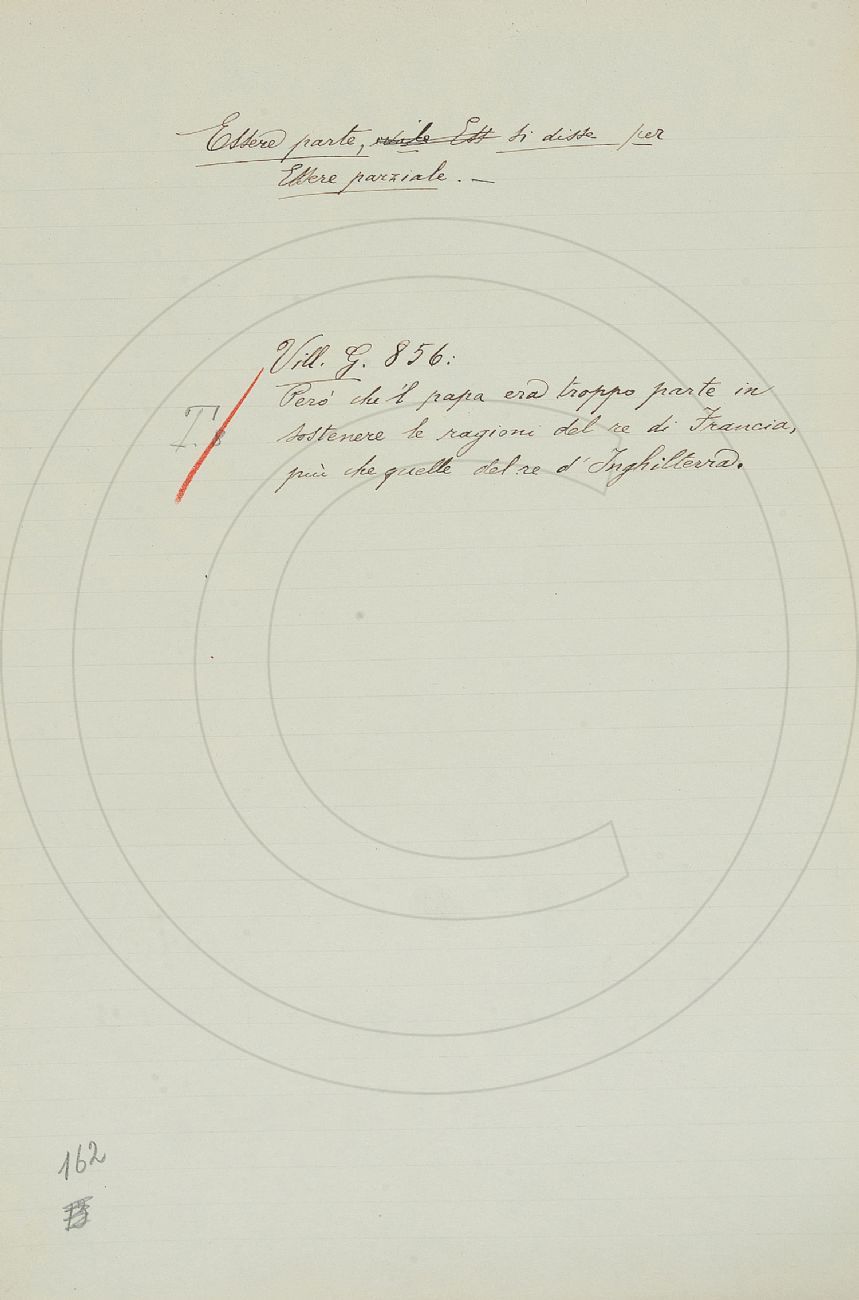 Essere parte, si disse per
Essere parziale. —
Vill. G. 856:
Però che 'l papa era troppo parte in
sostenere le ragioni del re di Francia,
più che quelle del re d'Inghilterra.
T.
162